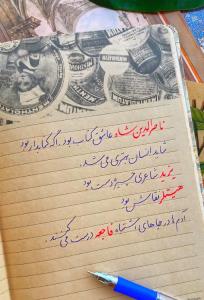 ناصرالدین شاه عاشق کتاب بود. اگه کتابدار بود
شاید انسان بهتری می شد.
یزید شاعری چیره دست بود
هیتلر نقاش بود
آدم ها در جاهای اشتباه فاجعه درست می کنند.